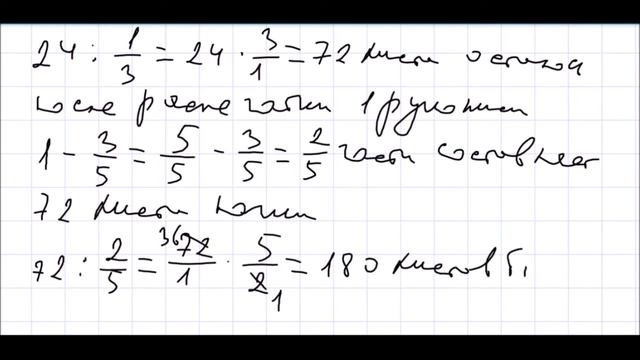 24 : 1/3 = 24 · 3/1 = 72 листа осталось
после распечатки 1 рукописи
1 - 3/5 = 5/5 - 3/5 = 2/5 части составляет
72 листа
72 : 2/5 = 36 72/1 · 5/2 1 = 180 листов б